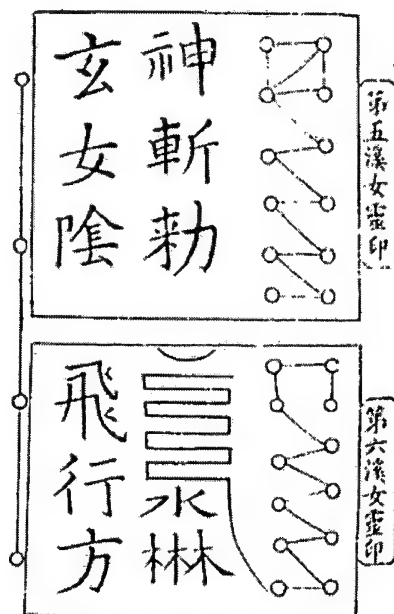 第五溪女靈印
神斬勅
玄女陰
第六溪女靈印
飛行方